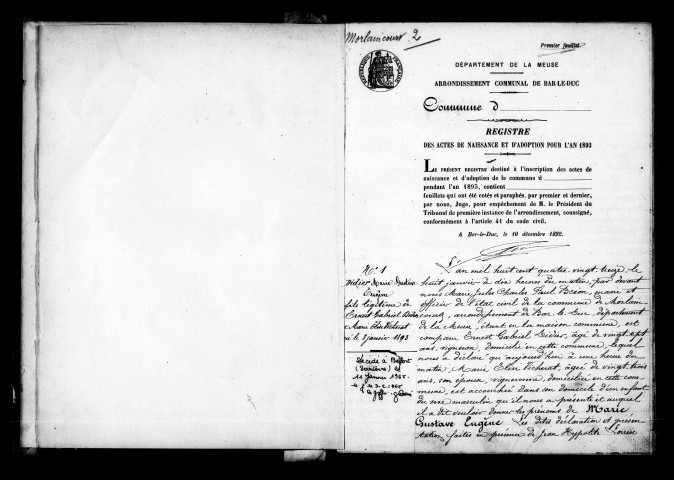 Morlaincourt 2
Premier feuillet
RÉPUBLIQUE FRANÇAISE
DÉPARTEMENT DE LA MEUSE
ARRONDISSEMENT COMMUNAL DE BAR-LE-DUC
Commune d
REGISTRE
DES ACTES DE NAISSANCE ET D'ADOPTION POUR L'AN 1893
LE PRÉSENT REGISTRE destiné à l'inscription des actes de
naissance et d'adoption de la commune d
pendant l'an 1893, contient
feuillets qui ont été cotés et paraphés, par premier et dernier,
par nous, Juge, pour empêchement de M. le Président du
Tribunal de première instance de l'arrondissement, soussigné,
conformément à l'article 41 du code civil.
A Bar-le-Duc, le 10 décembre 1892.
N° 1
Marie Gustave
Eugène
fils légitime de
Ernest Gabriel
né le 8 janvier 1893
Décédé à Belfort
11 Janvier 1965
L'an mil huit cent quatre-vingt-treize, le
huit janvier à dix heures du matin, par devant
nous Marie Jules Charles Paul maire et
officier de l'état civil de la commune de Morlain
court, arrondissement de Bar le Duc, département
de la Meuse, étant en la maison commune, est
comparu Ernest Gabriel âgé de vingt sept
ans, vigneron, domicilié en cette commune, lequel
nous a déclaré qu'aujourd'hui à une heure du
matin, Marie Elise âgée de vingt trois
ans, son épouse, vigneronne, domiciliée en cette com
mune, est accouchée dans son domicile d'un enfant
du sexe masculin qu'il nous a présenté et auquel
il a dit vouloir donner les prénoms de Marie
Gustave Eugène. Les dites déclaration et présen
tation faites en présence de Jean Hyppolite